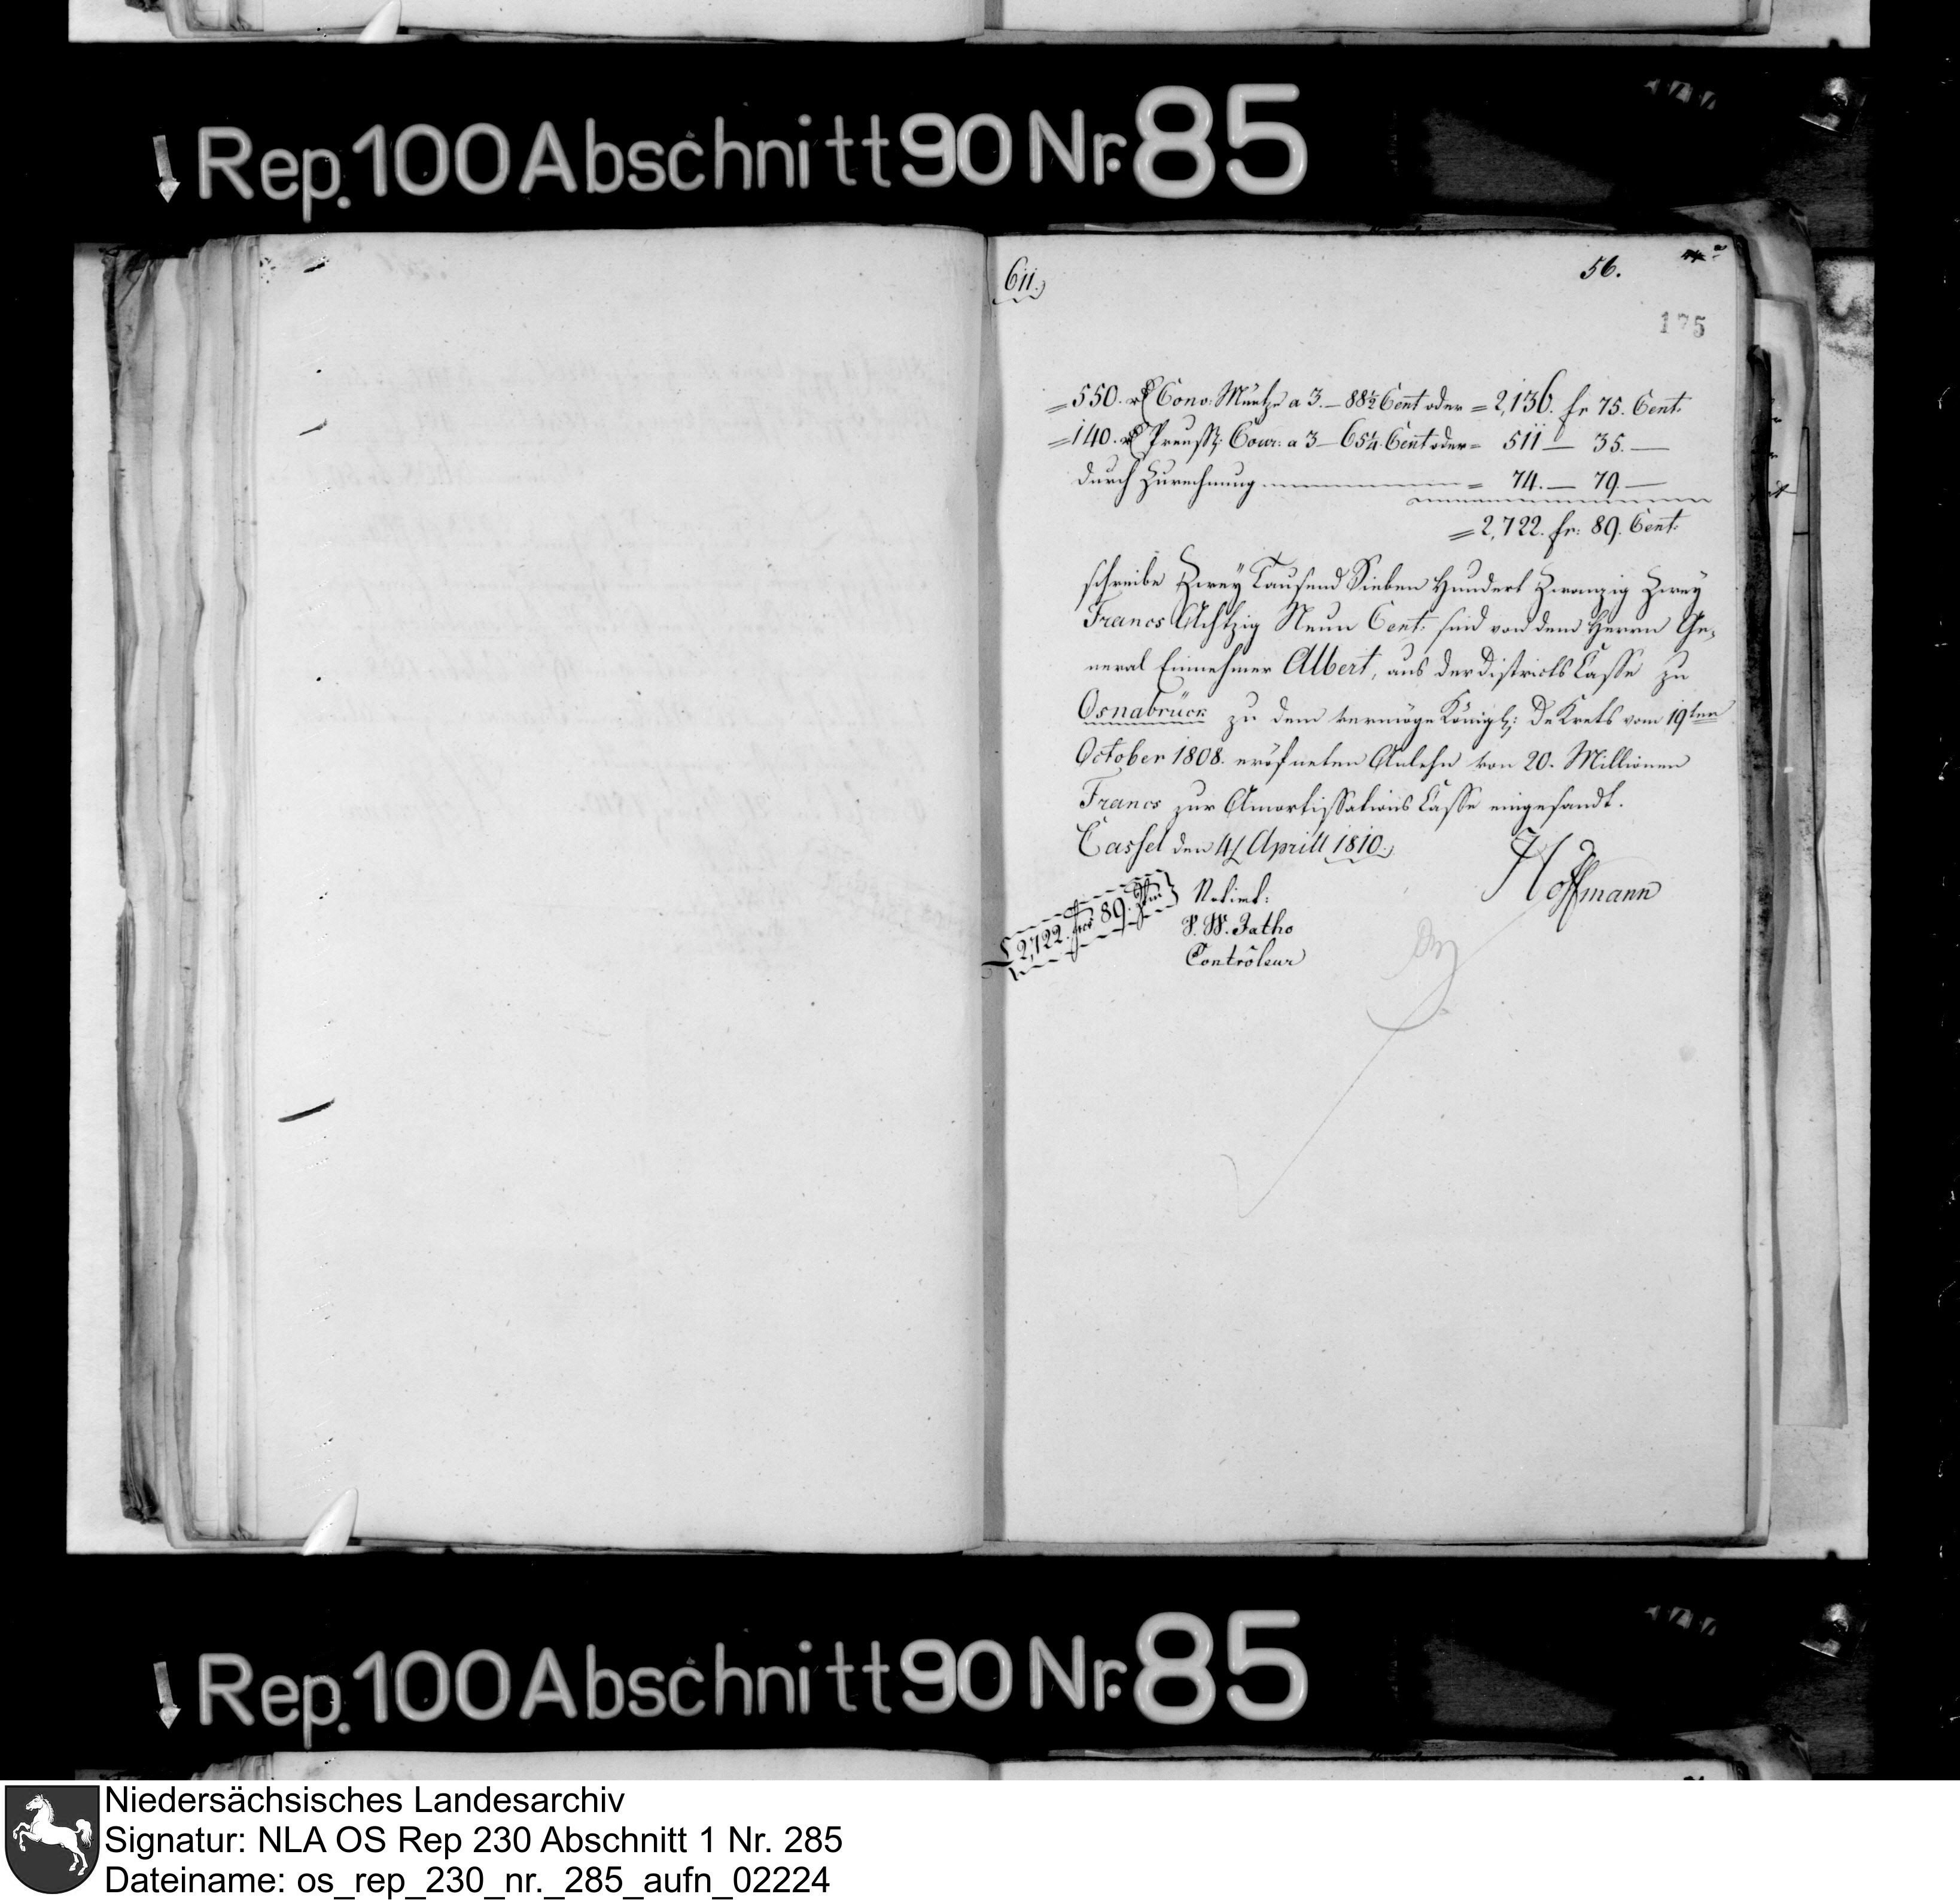 Rep. 100 Abschnitt 90 Nr. 85
611.)
56.
44
175
= 550. rß Conv: Müntze a 3.— 88½ Cent oder = 2,136. fr 75. Cent:
= 140. rß Preuss: Cour: a 3 — 65¼ Cent oder = 511 — 35. —
durch Zurechnung = 74. — 79. —
= 2,722. fr: 89. Cent:
schreibe Zwey Tausend Sieben Hundert Zwanzig Zwey
Francs Achtzig Neun Cent: sind von dem Herrn Ge-
neral Einnehmer Albert, aus der Districts Casse zu
Osnabrück zu dem vermöge Königl: DeKrets vom 19ten
October 1808. eröfneten Anlehn von 20. Millionen
Francs zur Amortissations Casse eingesandt.
Cassel den 4t Aprill 1810.
Hoffmann
2,722. frcs 89. Ctm
Notirt:
P. W. Fatho
Contrôleur
Rep. 100 Abschnitt 90 Nr. 85
Niedersächsisches Landesarchiv
Signatur: NLA OS Rep 230 Abschnitt 1 Nr. 285
Dateiname: os_rep_230_nr._285_aufn_02224